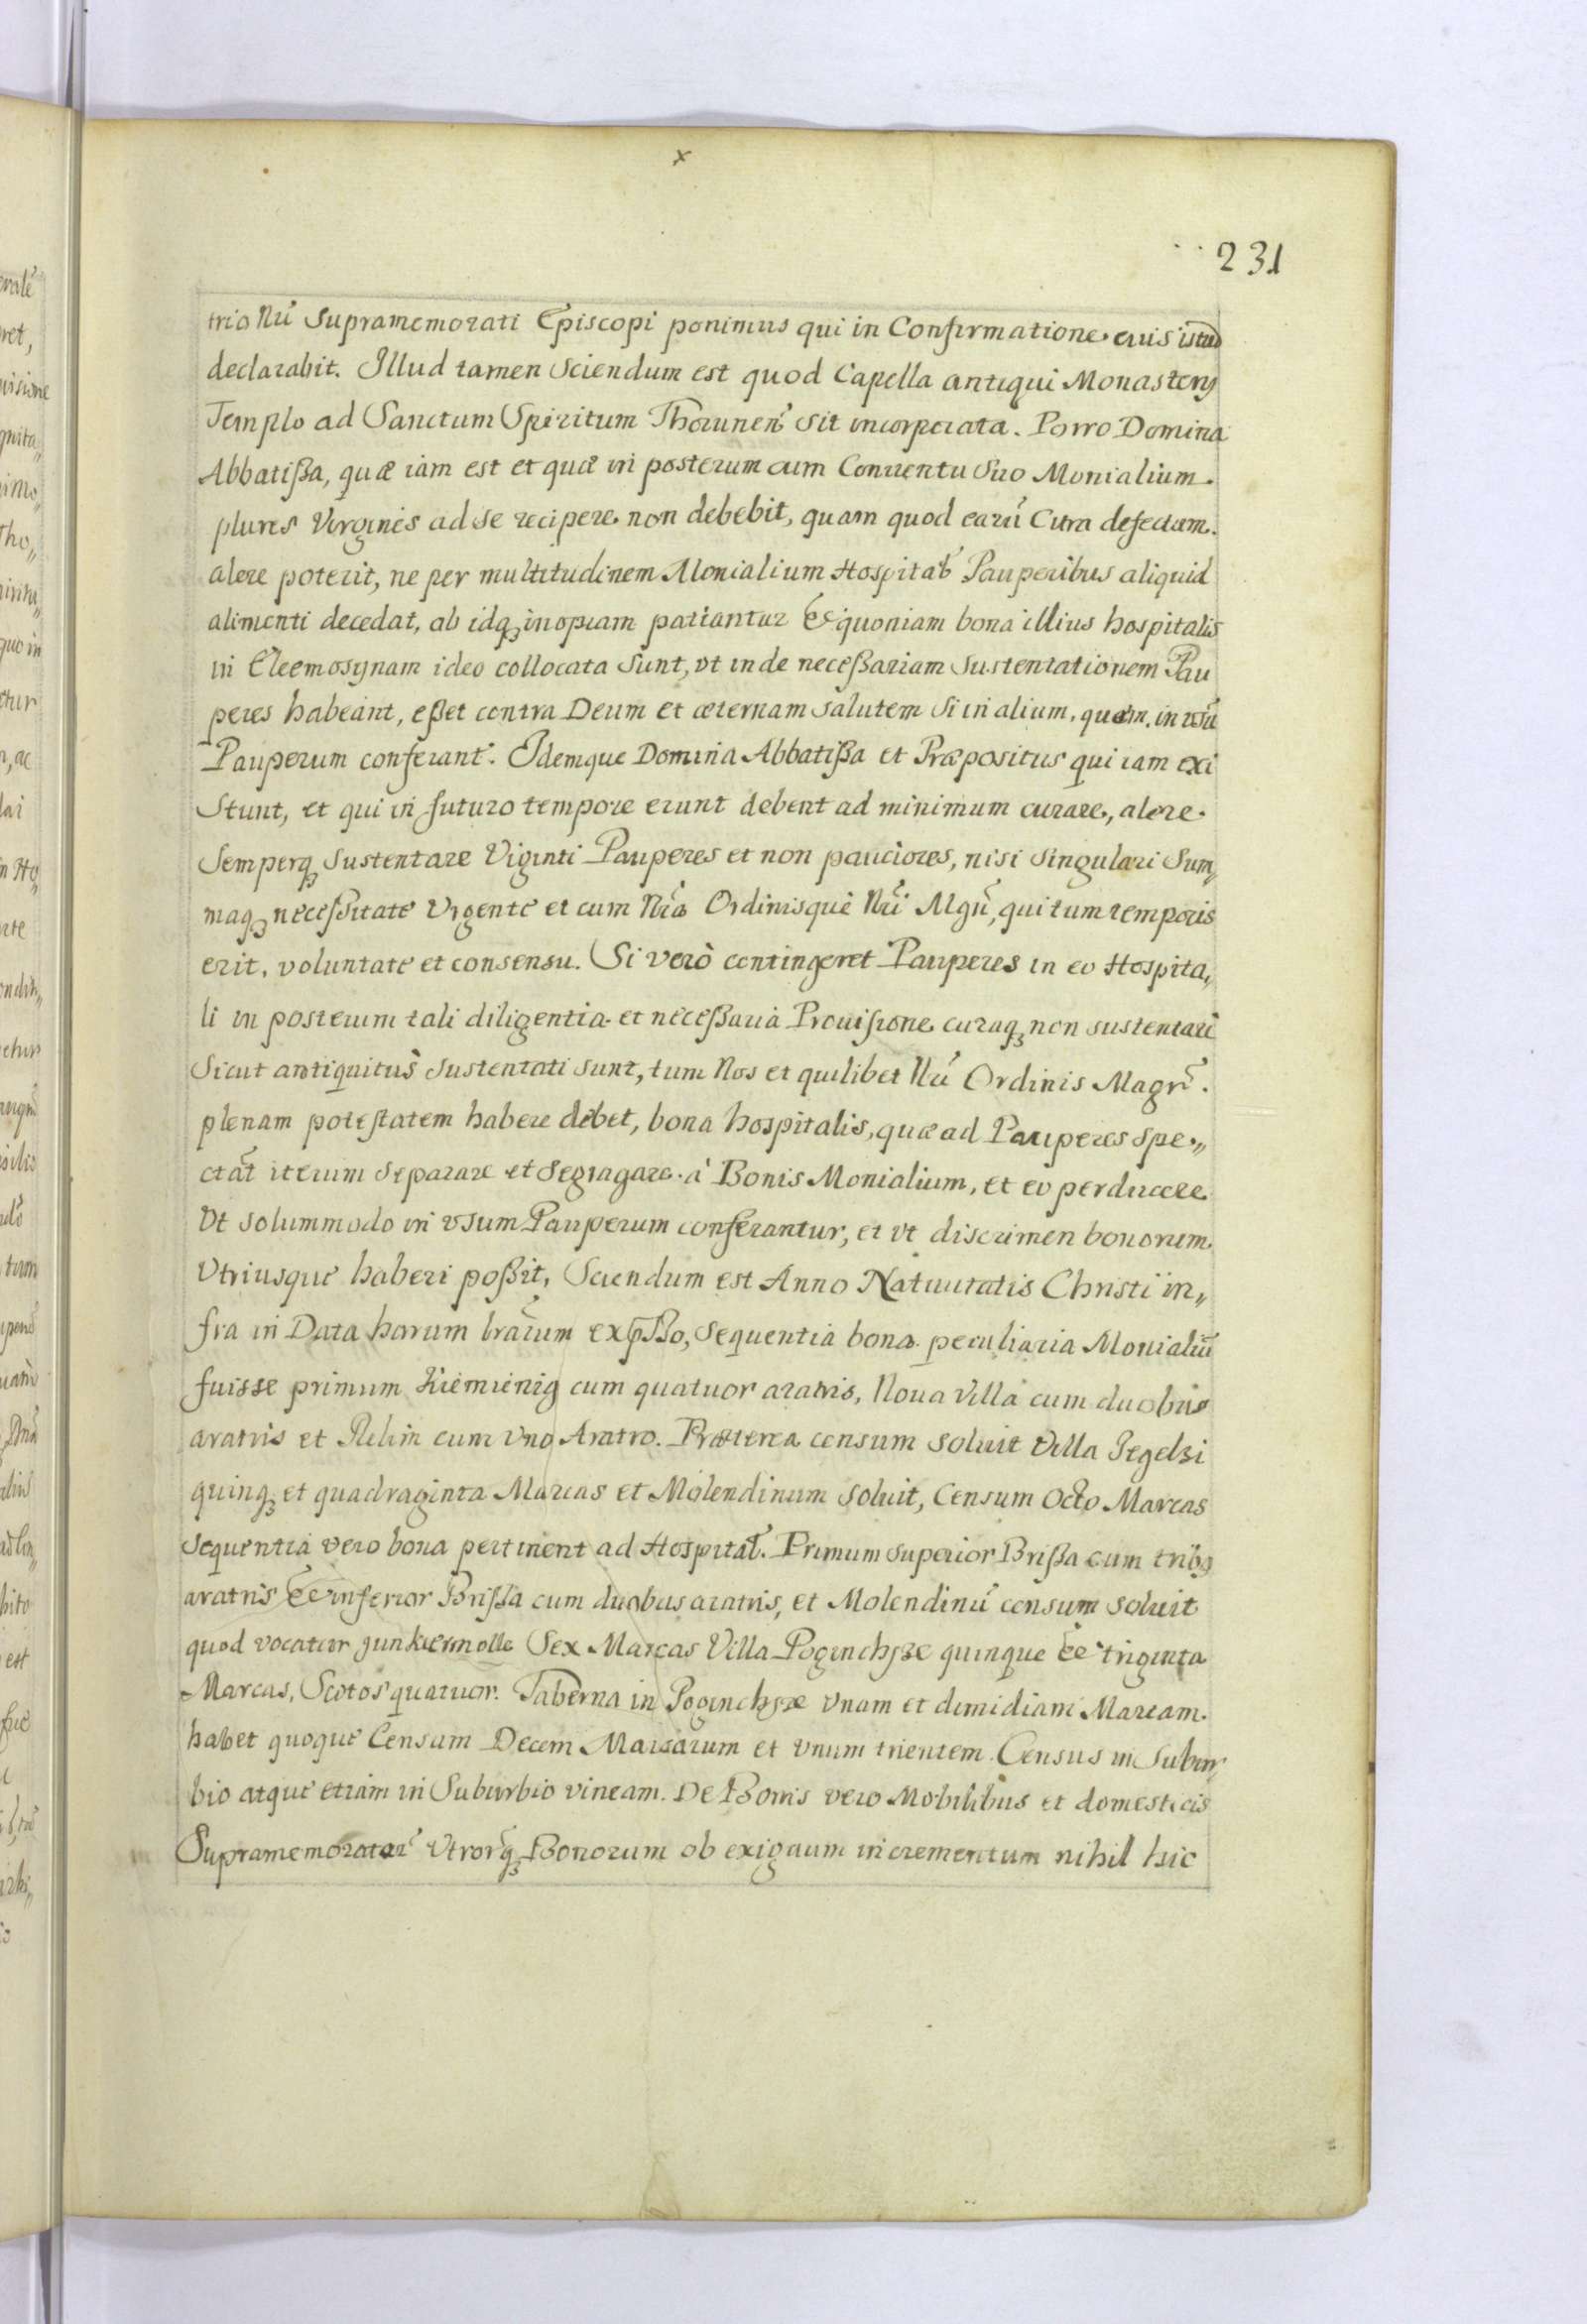 x
231
trio Nrĩ Supramemorati Episcopi ponimus qui in Confirmatione eius istud
declarabit. Illud tamen Sciendum est quod Capella antiqui Monasterij
Templo ad Sanctum Spiritum Thorunen̄ sit incorporata. Porro Domina
Abbatißa, quæ iam est et quæ in posterum cum Conuentu Suo Monialium
plures Virgines ad se recipere non debebit, quam quod earũ Citra defectum
alere poterit, ne per multitudinem Monialium Hospitał Pauperibus aliquid
alimenti decedat, ab idq3 inopiam patiantur Et quoniam bona illius hospitalis
in Eleemosynam ideo collocata Sunt, vt inde neceßariam Sustentationem Pau
peres habeant, eßet contra Deum et æternam salutem Si in alium, quam in vsũ
Pauperum conferant. Idemque Domina Abbatißa et Præpositus qui iam exi
Stunt, et qui in futuro tempore erunt debent ad minimum curare, alere
Semperq3 Sustentare Viginti Pauperes et non pauciores, nisi Singulari Sum„
maq3 neceßitate Vrgente et cum Nrã Ordinisque Nrĩ Mgrĩ, qui tum temporis
erit, voluntate et consensu. Si verò contingeret Pauperes in eo Hospita„
li in posterum tali diligentia et neceßaria Prouisione curaq3 non sustentari
Sicut antiquitus Sustentati sunt, tum Nos et quilibet Nrĩ Ordinis Magr̃
plenam potestatem habere debet, bona hospitalis, quæ ad Pauperes spe„
ctãt iterum Separare et Segragare à Bonis Monialium, et eo perducere
Vt solummodo in vsum Pauperum conferantur, et vt discrimen bonorum
Vtriusque haberi poßit, Sciendum est Anno Natiuitatis Christi in„
fra in Data harum lrãrum expßo, Sequentia bona peculiaria Monialiũ
fuisse primum Kiemienig cum quatuor aratris, Noua Villa cum duobus
aratris et Relim cum vno Aratro. Præterea censum Soluit Villa Jegelsi
quinq3 et quadraginta Marcas et Molendinum Soluit, Censum Octo Marcas
Sequentia vero bona pertinent ad Hospitał. Primum Superior Brißa cum tribq
aratris Et inferior Brißa cum duobus aratris, et Molendinũ censum Soluit
quod vocatur junkiermolle Sex Marcas Villa Poginchsze quinque Et triginta
Marcas, Scotos quatuor. Taberna in Poginchsze vnam et dimidiam Marcam
habet quoque Censum Decem Marcarum et vnum trientem. Census in Subur„
bio atque etiam in Suburbio vineam. De Bonis vero Mobilibus et domesticis
Supramemoratar̃ Vtror̃q3 Bonorum ob exiguum incrementum nihil hic